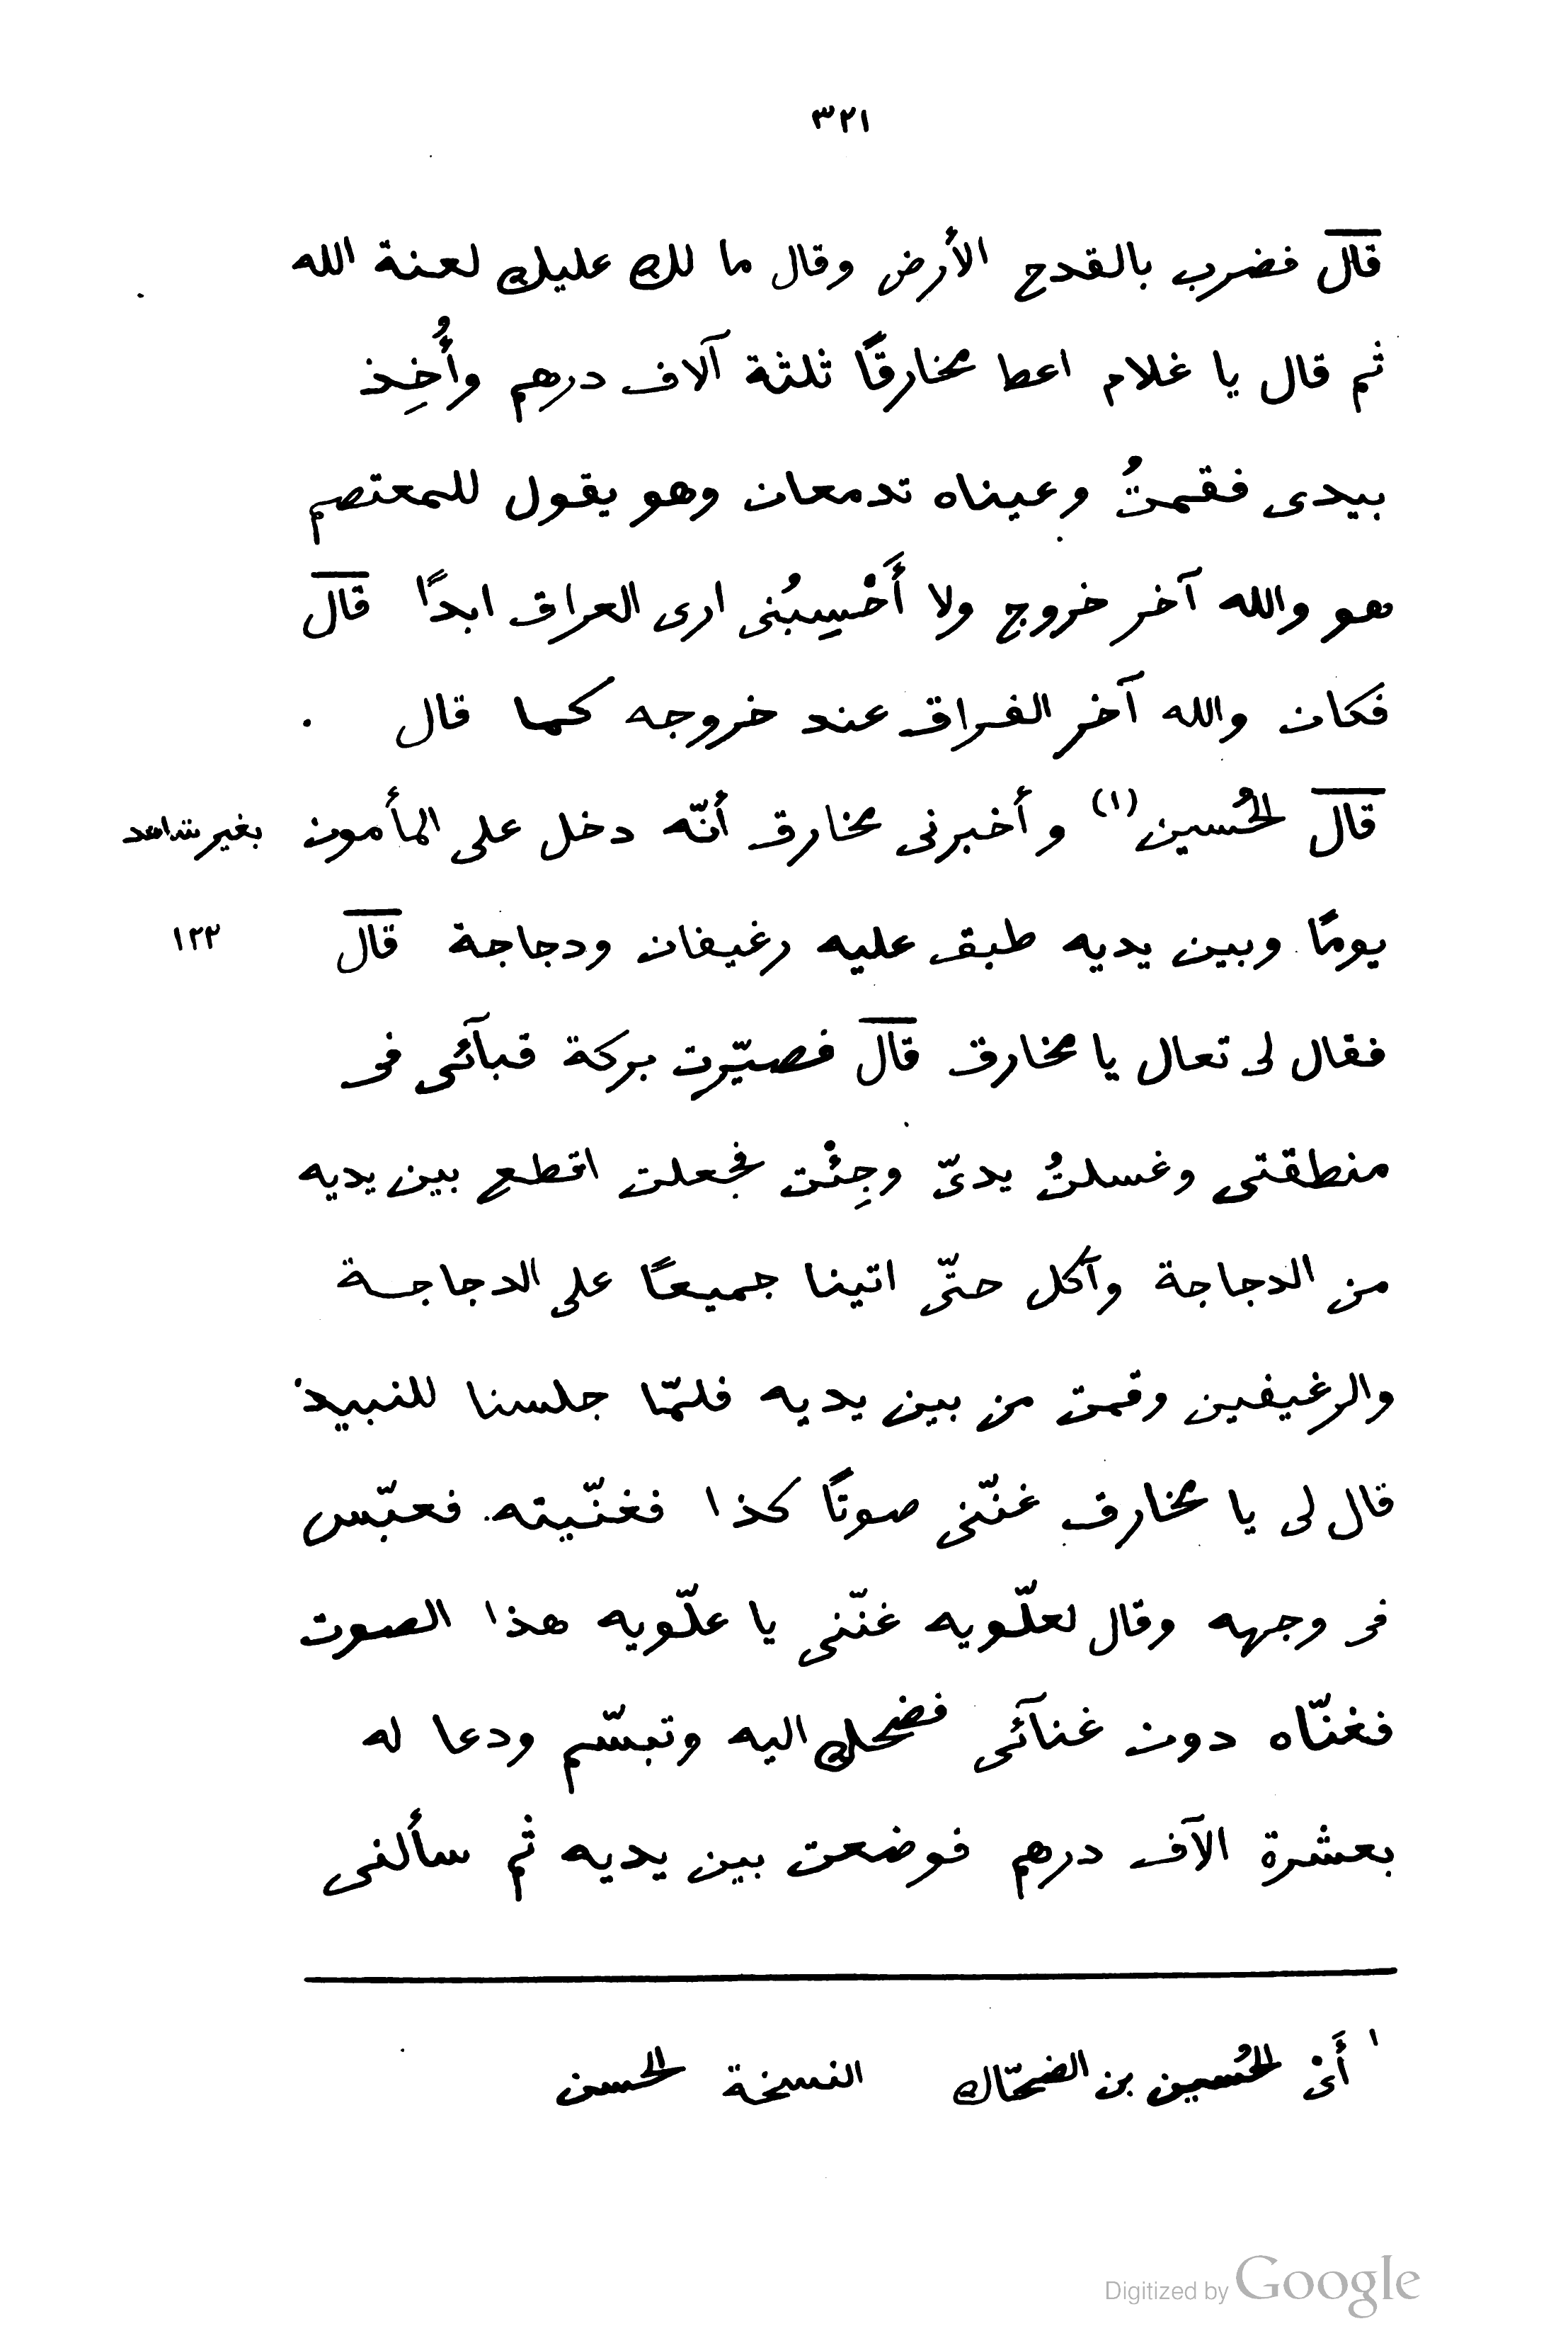 ٣٢١
قال فضرب بالقدح الأرض وقال ما لك عليك لعنة الله
ثم قال يا غلام اعط مخارقًا ثلثة آلاف درهم وأُخِذ
بيدى فقمتُ وعيناه تدمعان وهو يقول للمعتصم
هو والله آخر خروج ولا أَحْسِبُنى ارى العراق ابدًا قال
فكان والله آخر الفراق عند خروجه كما قال .
قال الحُسين (١) وأخبرنى مخارق أنّه دخل على المأمون بغير شاهد
يومًا وبين يديه طبق عليه رغيفان ودجاجة قال ١٢٢
فقال لى تعال يا مخارق قال فصيّرت بركة قبآئى فى
منطقتى وغسلتُ يدىّ وجِئْت فجعلت اقطع بين يديه
من الدجاجة وآكل حتّى اتينا جميعًا على الدجاجة
والرغيفين وقمت من بين يديه فلمّا جلسنا للنبيذ
قال لى يا مخارق غنّنى صوتًا كذا فغنّيته فعبّس
فى وجهه وقال لعلّويه غنّنى يا علّويه هذا الصوت
فغنّاه دون غنآئى فضحك اليه وتبسّم ودعا له
بعشرة الآف درهم فوضعت بين يديه ثم سألنى
١ أَىْ الحُسين بن الضحّاك النسخة الحسن
Digitized by Google